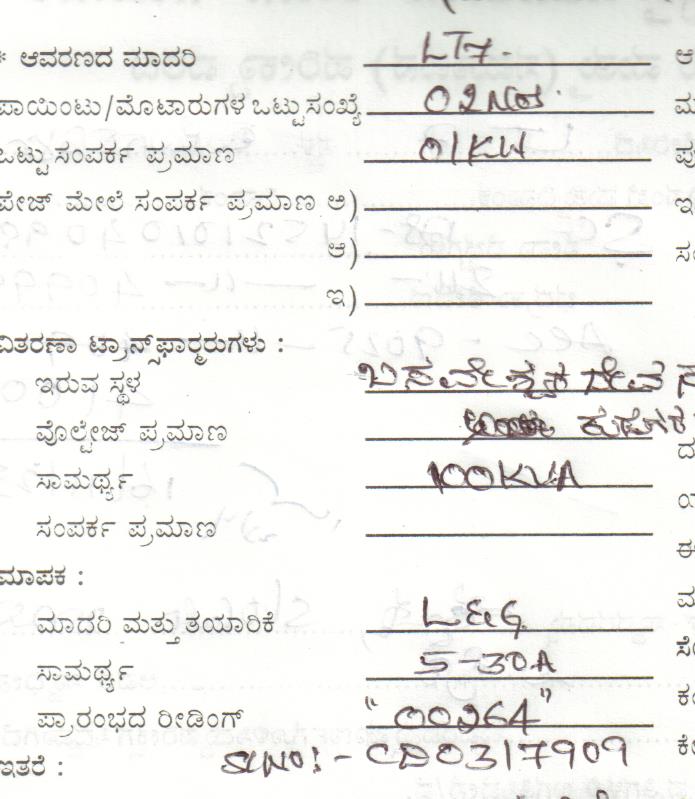 * ಆವರಣದ ಮಾದರಿ LT7. ಆ
ಪಾಯಿಂಟು/ಮೊಟಾರುಗಳ ಒಟ್ಟುಸಂಖ್ಯೆ 02 Nos.
ಒಟ್ಟು ಸಂಪರ್ಕ ಪ್ರಮಾಣ 01KW
ಪೇಜ್ ಮೇಲೆ ಸಂಪರ್ಕ ಪ್ರಮಾಣ ಅ)
ಆ)
ಇ)
ವಿತರಣಾ ಟ್ರಾನ್ಸ್‌ಫಾರ್ಮರುಗಳು :
ಇರುವ ಸ್ಥಳ ಬಸವೇಶ್ವರ ದೇವ
ವೊಲ್ಟೇಜ್ ಪ್ರಮಾಣ
ಸಾಮರ್ಥ್ಯ 100KVA
ಸಂಪರ್ಕ ಪ್ರಮಾಣ
ಮಾಪಕ :
ಮಾದರಿ ಮತ್ತು ತಯಾರಿಕೆ L&G
ಸಾಮರ್ಥ್ಯ 5-30A
ಪ್ರಾರಂಭದ ರೀಡಿಂಗ್ "00264"
ಇತರೆ : Sl No:- CD0317909